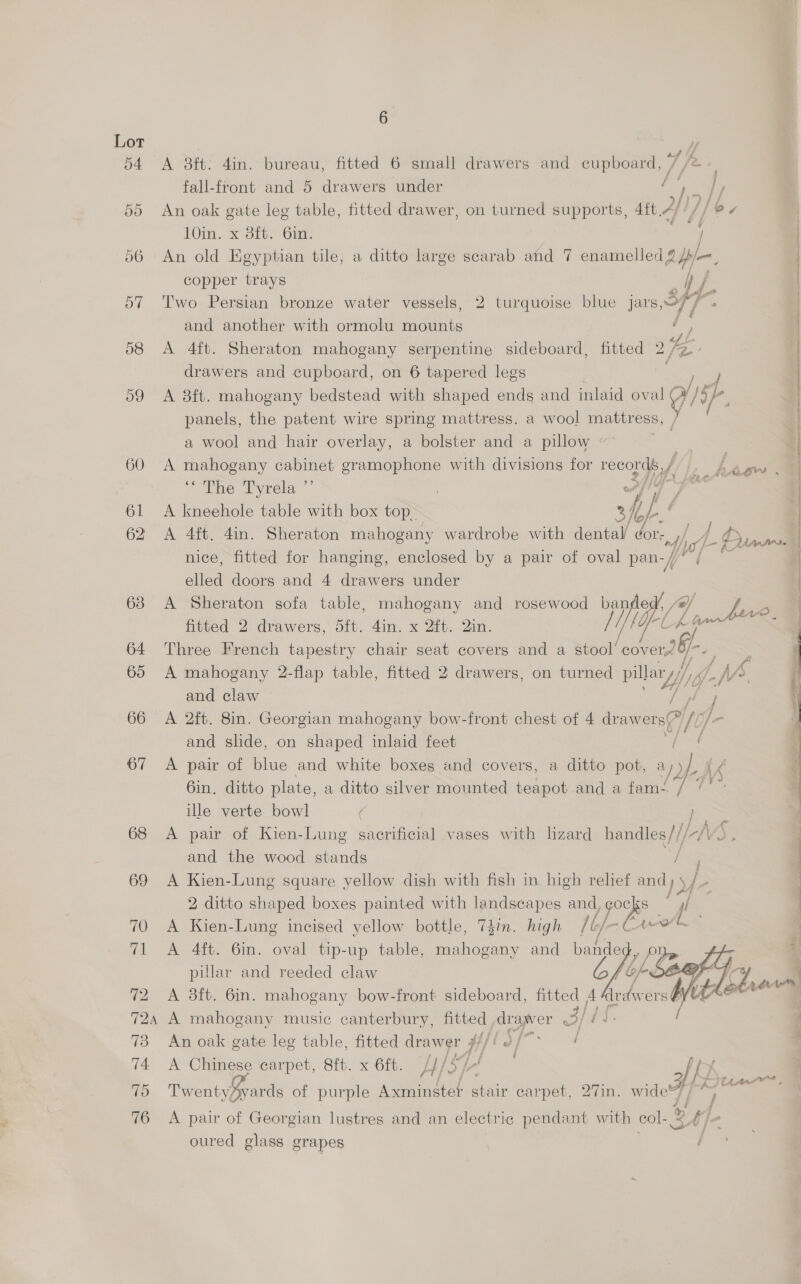 6
Lot
54 A 3ft. 4in. bureau, fitted 6 small drawers and cupboard,
fall-front and 5 drawers under
55 An oak gate leg table, fitted drawer, on turned supports, 4ft.
10in. x 3ft. 6in.
56 An old Egyptian tile, a ditto large scarab and 7 enamelled
copper trays
57 Two Persian bronze water vessels, 2 turquoise blue jars,
and another with ormolu mounts
58 A 4ft. Sheraton mahogany serpentine sideboard, fitted 2
drawers and cupboard, on 6 tapered legs
59 A 3ft. mahogany bedstead with shaped ends and inlaid oval
panels, the patent wire spring mattress, a wool mattress,
a wool and hair overlay, a bolster and a pillow
60 A mahogany cabinet gramophone with divisions for records,
“The Tyrela”
61 A kneehole table with box top
62 A 4ft. 4in. Sheraton mahogany wardrobe with dental cor-
nice, fitted for hanging, enclosed by a pair of oval pan-
elled doors and 4 drawers under
63 A Sheraton sofa table, mahogany and rosewood banded,
fitted 2 drawers, 5ft. 4in. x 2ft. 2in.
64 Three French tapestry chair seat covers and a stool cover
65 A mahogany 2-flap table, fitted 2 drawers, on turned pillar
and claw
66 A 2ft. 8in. Georgian mahogany bow-front chest of 4 drawers
and slide, on shaped inlaid feet
67 A pair of blue and white boxes and covers, a ditto pot, a
6in. ditto plate, a ditto silver mounted teapot and a fam-
ille verte bowl
68 A pair of Kien-Lung sacrificial vases with lizard handles
and the wood stands
69 A Kien-Lung square yellow dish with fish in high relief and
2 ditto shaped boxes painted with landscapes and cocks
70 A Kien-Lung incised yellow bottle, 7½in. high
71 A 4ft. 6in. oval tip-up table, mahogany and banded, on
pillar and reeded claw
72 A 3ft. 6in. mahogany bow-front sideboard, fitted 4 drawers
72A A mahogany music canterbury, fitted drawer
73 An oak gate leg table, fitted drawer
74 A Chinese carpet, 8ft. x 6ft.
75 Twenty yards of purple Axminster stair carpet, 27in. wide
76 A pair of Georgian lustres and an electric pendant with col-
oured glass grapes